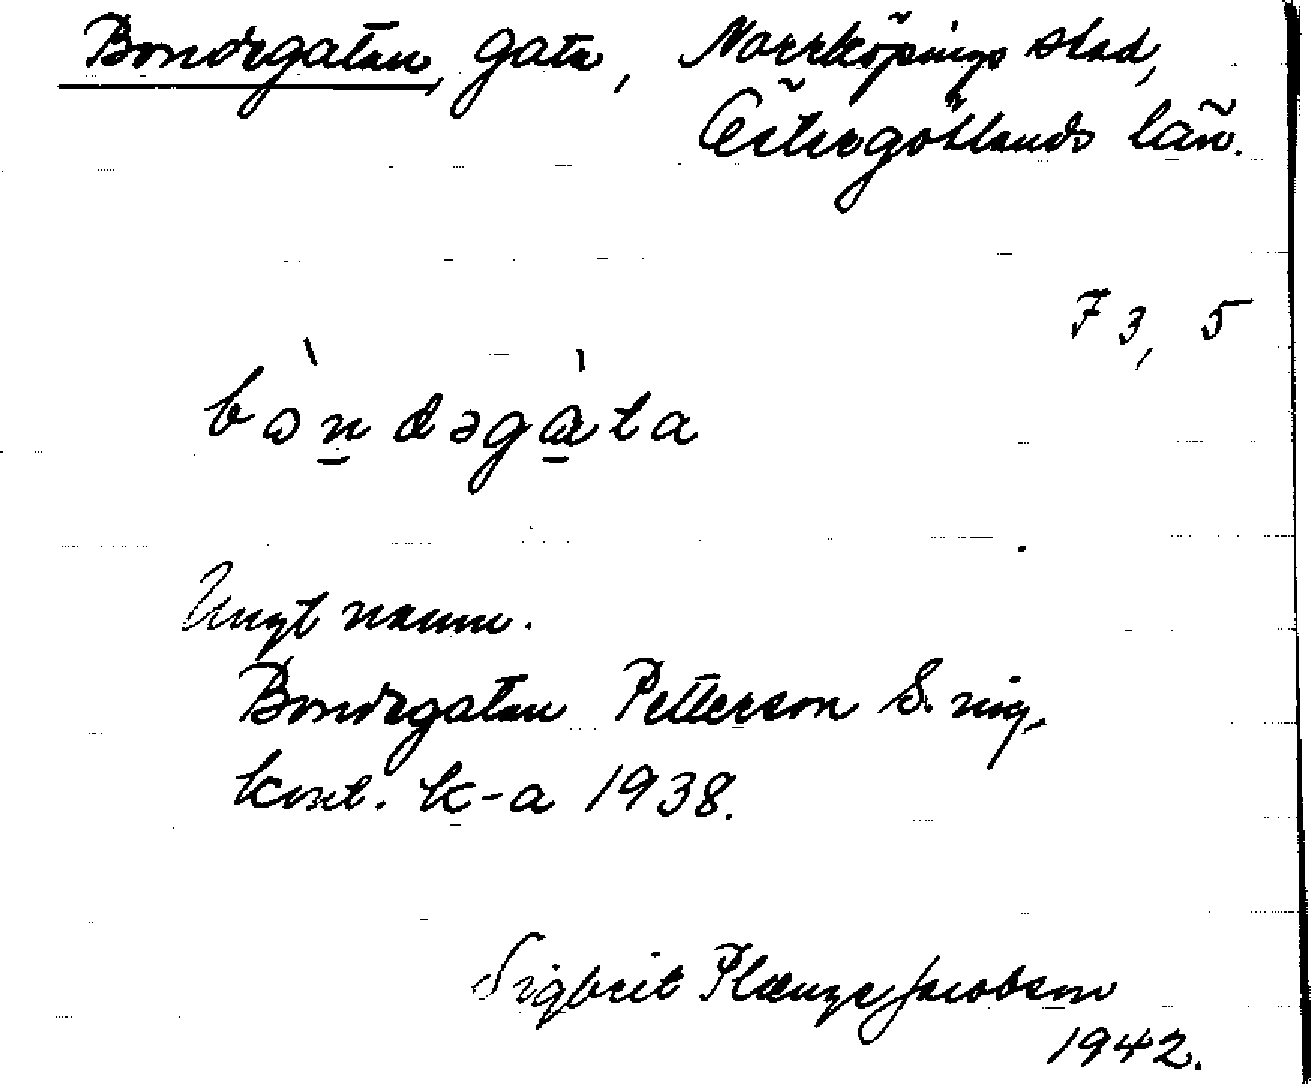 Bondegatan, gata, Norrköpings stad,
Östergötlands län.
F 3, 5
bòndəgàta
Ungt namn.
Bondegatan Petterson S. reg.
kont. k-a 1938.
Sigbrit Plænge Jacobson
1942.